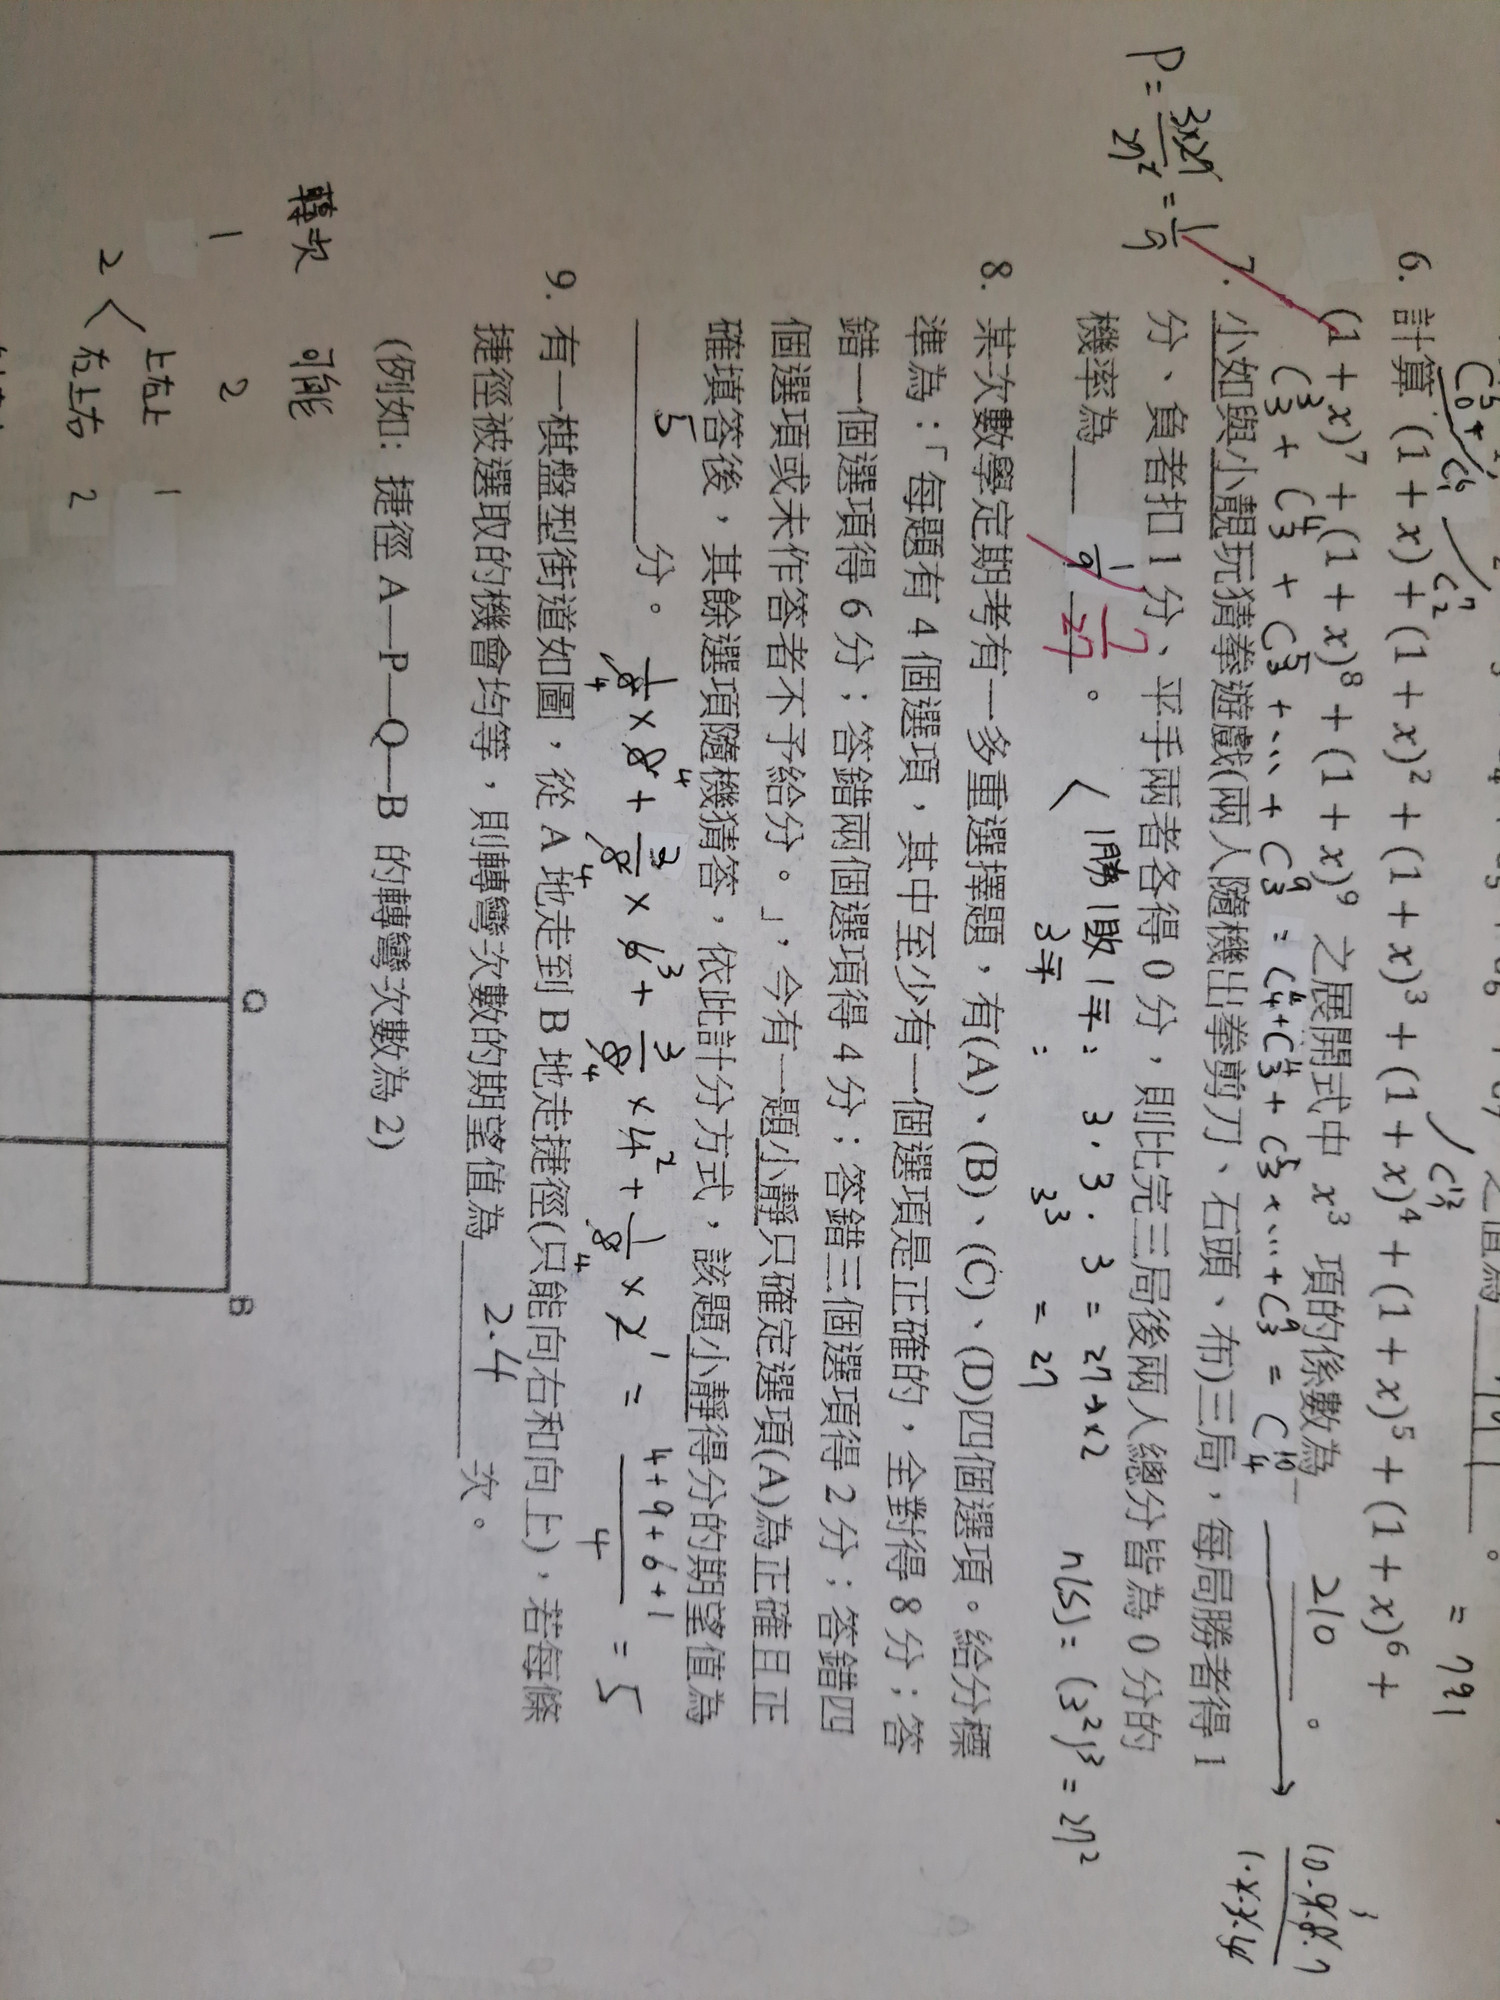 = 791
6. 計算 (1 + x) + (1 + x)² + (1 + x)³ + (1 + x)⁴ + (1 + x)⁵ + (1 + x)⁶ +
(1 + x)⁷ + (1 + x)⁸ + (1 + x)⁹ 之展開式中 x³ 項的係數為 210 。
C³₃ + C⁴₃ + C⁵₃ + ... + C⁹₃ = C⁴₄ + C⁴₃ + C⁵₃ + ... + C⁹₃ = C¹⁰₄
7. 小如與小靚玩猜拳遊戲(兩人隨機出拳剪刀、石頭、布)三局，每局勝者得 1
分、負者扣 1 分、平手兩者各得 0 分，則比完三局後兩人總分皆為 0 分的
機率為 1/9 7/27 。
P = 3×27/27² = 1/9
1勝1敗1平： 3 · 3 · 3 = 27 × 2
3平： 3³ = 27
n(S) = (3²)³ = 27²
8. 某次數學定期考有一多重選擇題，有(A)、(B)、(C)、(D)四個選項。給分標
準為：「每題有 4 個選項，其中至少有一個選項是正確的，全對得 8 分；答
錯一個選項得 6 分；答錯兩個選項得 4 分；答錯三個選項得 2 分；答錯四
個選項或未作答者不予給分。」，今有一題小靜只確定選項(A)為正確且正
確填答後，其餘選項隨機猜答，依此計分方式，該題小靜得分的期望值為
5 分。
1/8 × 8 + 3/8 × 6 + 3/8 × 4 + 1/8 × 2 = 4+9+6+1/4 = 5
9. 有一棋盤型街道如圖，從 A 地走到 B 地走捷徑(只能向右和向上)，若每條
捷徑被選取的機會均等，則轉彎次數的期望值為 2.4 次。
(例如: 捷徑 A—P—Q—B 的轉彎次數為 2)
轉次 可能
1 2
2 上右上 1
右上右 2
Q
B